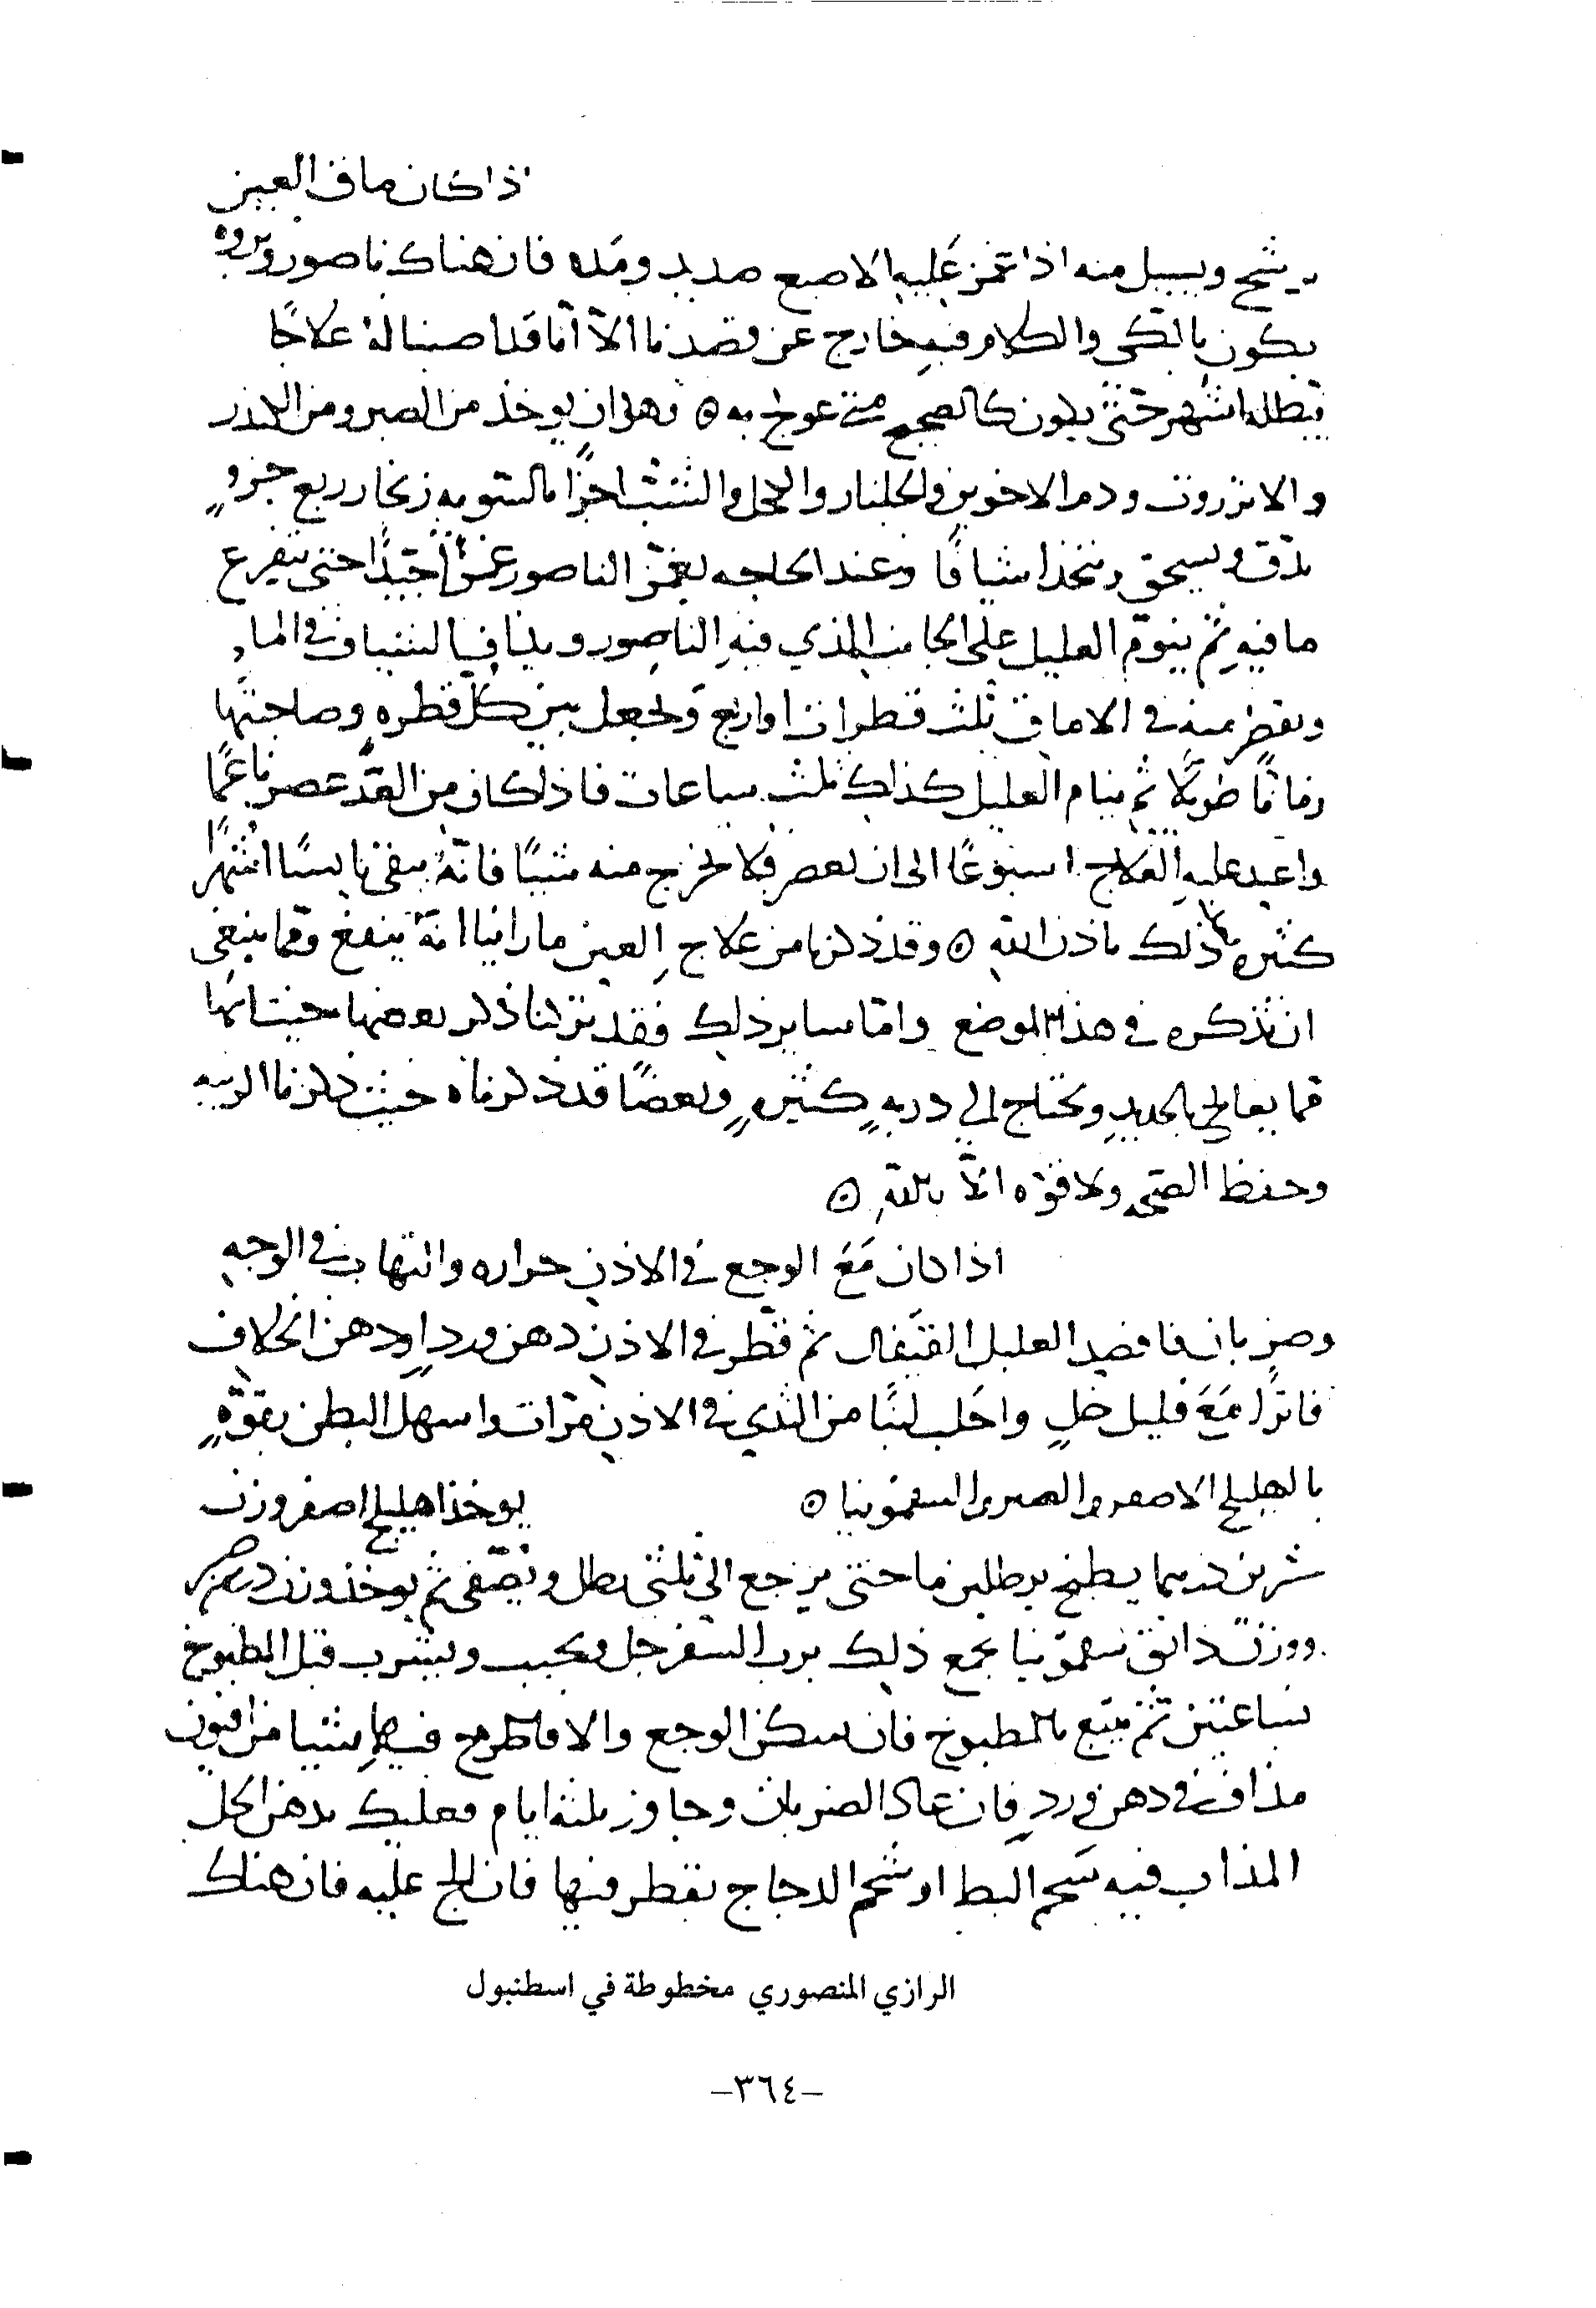 اذا كان ماق العين
يرشح ويسيل منه اذا غمز عليه الاصبع صديد ومده فان هناك ناصور وبروه
يكون بالكى والكلام فيه خارج عن قصدنا الا انا قد اصبنا له علاجًا
يبطله اشهر حتى يكون كالصحيح متى عولج به ه وهو ان يوخذ من الصبر ومن الكندر
والانزروت ودم الاخوين والجلنار والكحل والشب اجزا بالسويه زنجار ربع جزو
يدق ويسحق ويتخذ اشيافا وعند الحاجه يغمز الناصور غمزًا جيدًا حتى يتفرع
ما فيه ثم ينوم العليل على الجانب الذي فيه الناصور ويداف الشياف في الماء
ويقطر منه في الاماق ثلث قطرات او اربع ويجعل بين كل قطره وصاحبتها
زمانًا طويلا ثم ينام العليل كذلك ثلث ساعات فاذا كان من الغد عصر ناعمًا
واعيد عليه العلاج اسبوعًا الى ان يعصر فلا يخرج منه شيًا فانه يبقى يابسًا اشهرًا
كثيره بذلك باذن الله ه وقد ذكرنا من علاج العين ما راينا انه ينفع ومما ينبغى
ان نذكره في هذا الموضع واما ساير ذلك فقد تركنا ذكر بعضها
مما يعالج بالحديد ويحتاج الى دربه كثيره وبعضًا قد ذكرناه حيث ذكرنا الزينه
وحفظ الصحه ولا قوه الا بالله ه
اذا كان مع الوجع في الاذن حراره والتهاب في الوجه
وضربان فافصد العليل القيفال ثم قطر في الاذن دهن ورد او دهن الخلاف
فاترًا مع قليل خل واحلب لبنًا من الثدي في الاذن مرات واسهل البطن بقوه
بالهليلج الاصفر والصبر والسقمونيا ه يوخذ اهليلج اصفر وزن
عشرين درهما يطبخ برطلين ما حتى يرجع الى ثلثى رطل ويصفى ثم يوخذ وزن درهم صبر
ووزن دانق سقمونيا يجمع ذلك برب السفرجل ويحبب ويشرب قبل المطبوخ
بساعتين ثم يتبع بالمطبوخ فان سكن الوجع والا فاطرح فيها شيا من افيون
مذاف في دهن ورد فان عاد الضربان وجاوز ثلثه ايام فعليك بدهن الحل
المذاب فيه شحم البط او شحم الدجاج يقطر فيها فان الح عليه فان هناك
الرازي المنصوري مخطوطة في اسطنبول
–٣٦٤–